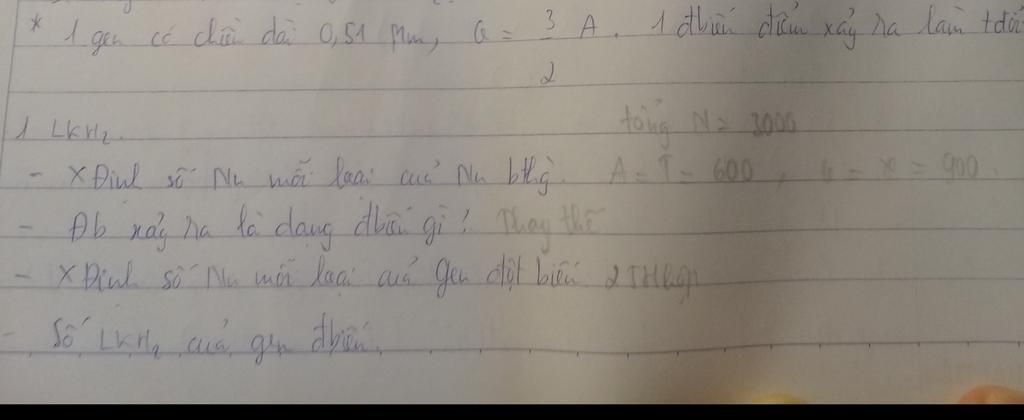 * 1 gen có chiều dài 0,51 Mm, G = 3/2 A. 1 đbiến điểm xảy ra làm tđổi
1 LKH2. tổng N = 3000
- XĐinh số Nu mỗi loại của Nu bthg. A = T = 600, G = X = 900.
- Đb xảy ra là dạng đbiến gì? Thay thế
- XĐinh số Nu mỗi loại của gen đột biến. 2 THhợp
- Số LKH2 của gen đbiến.